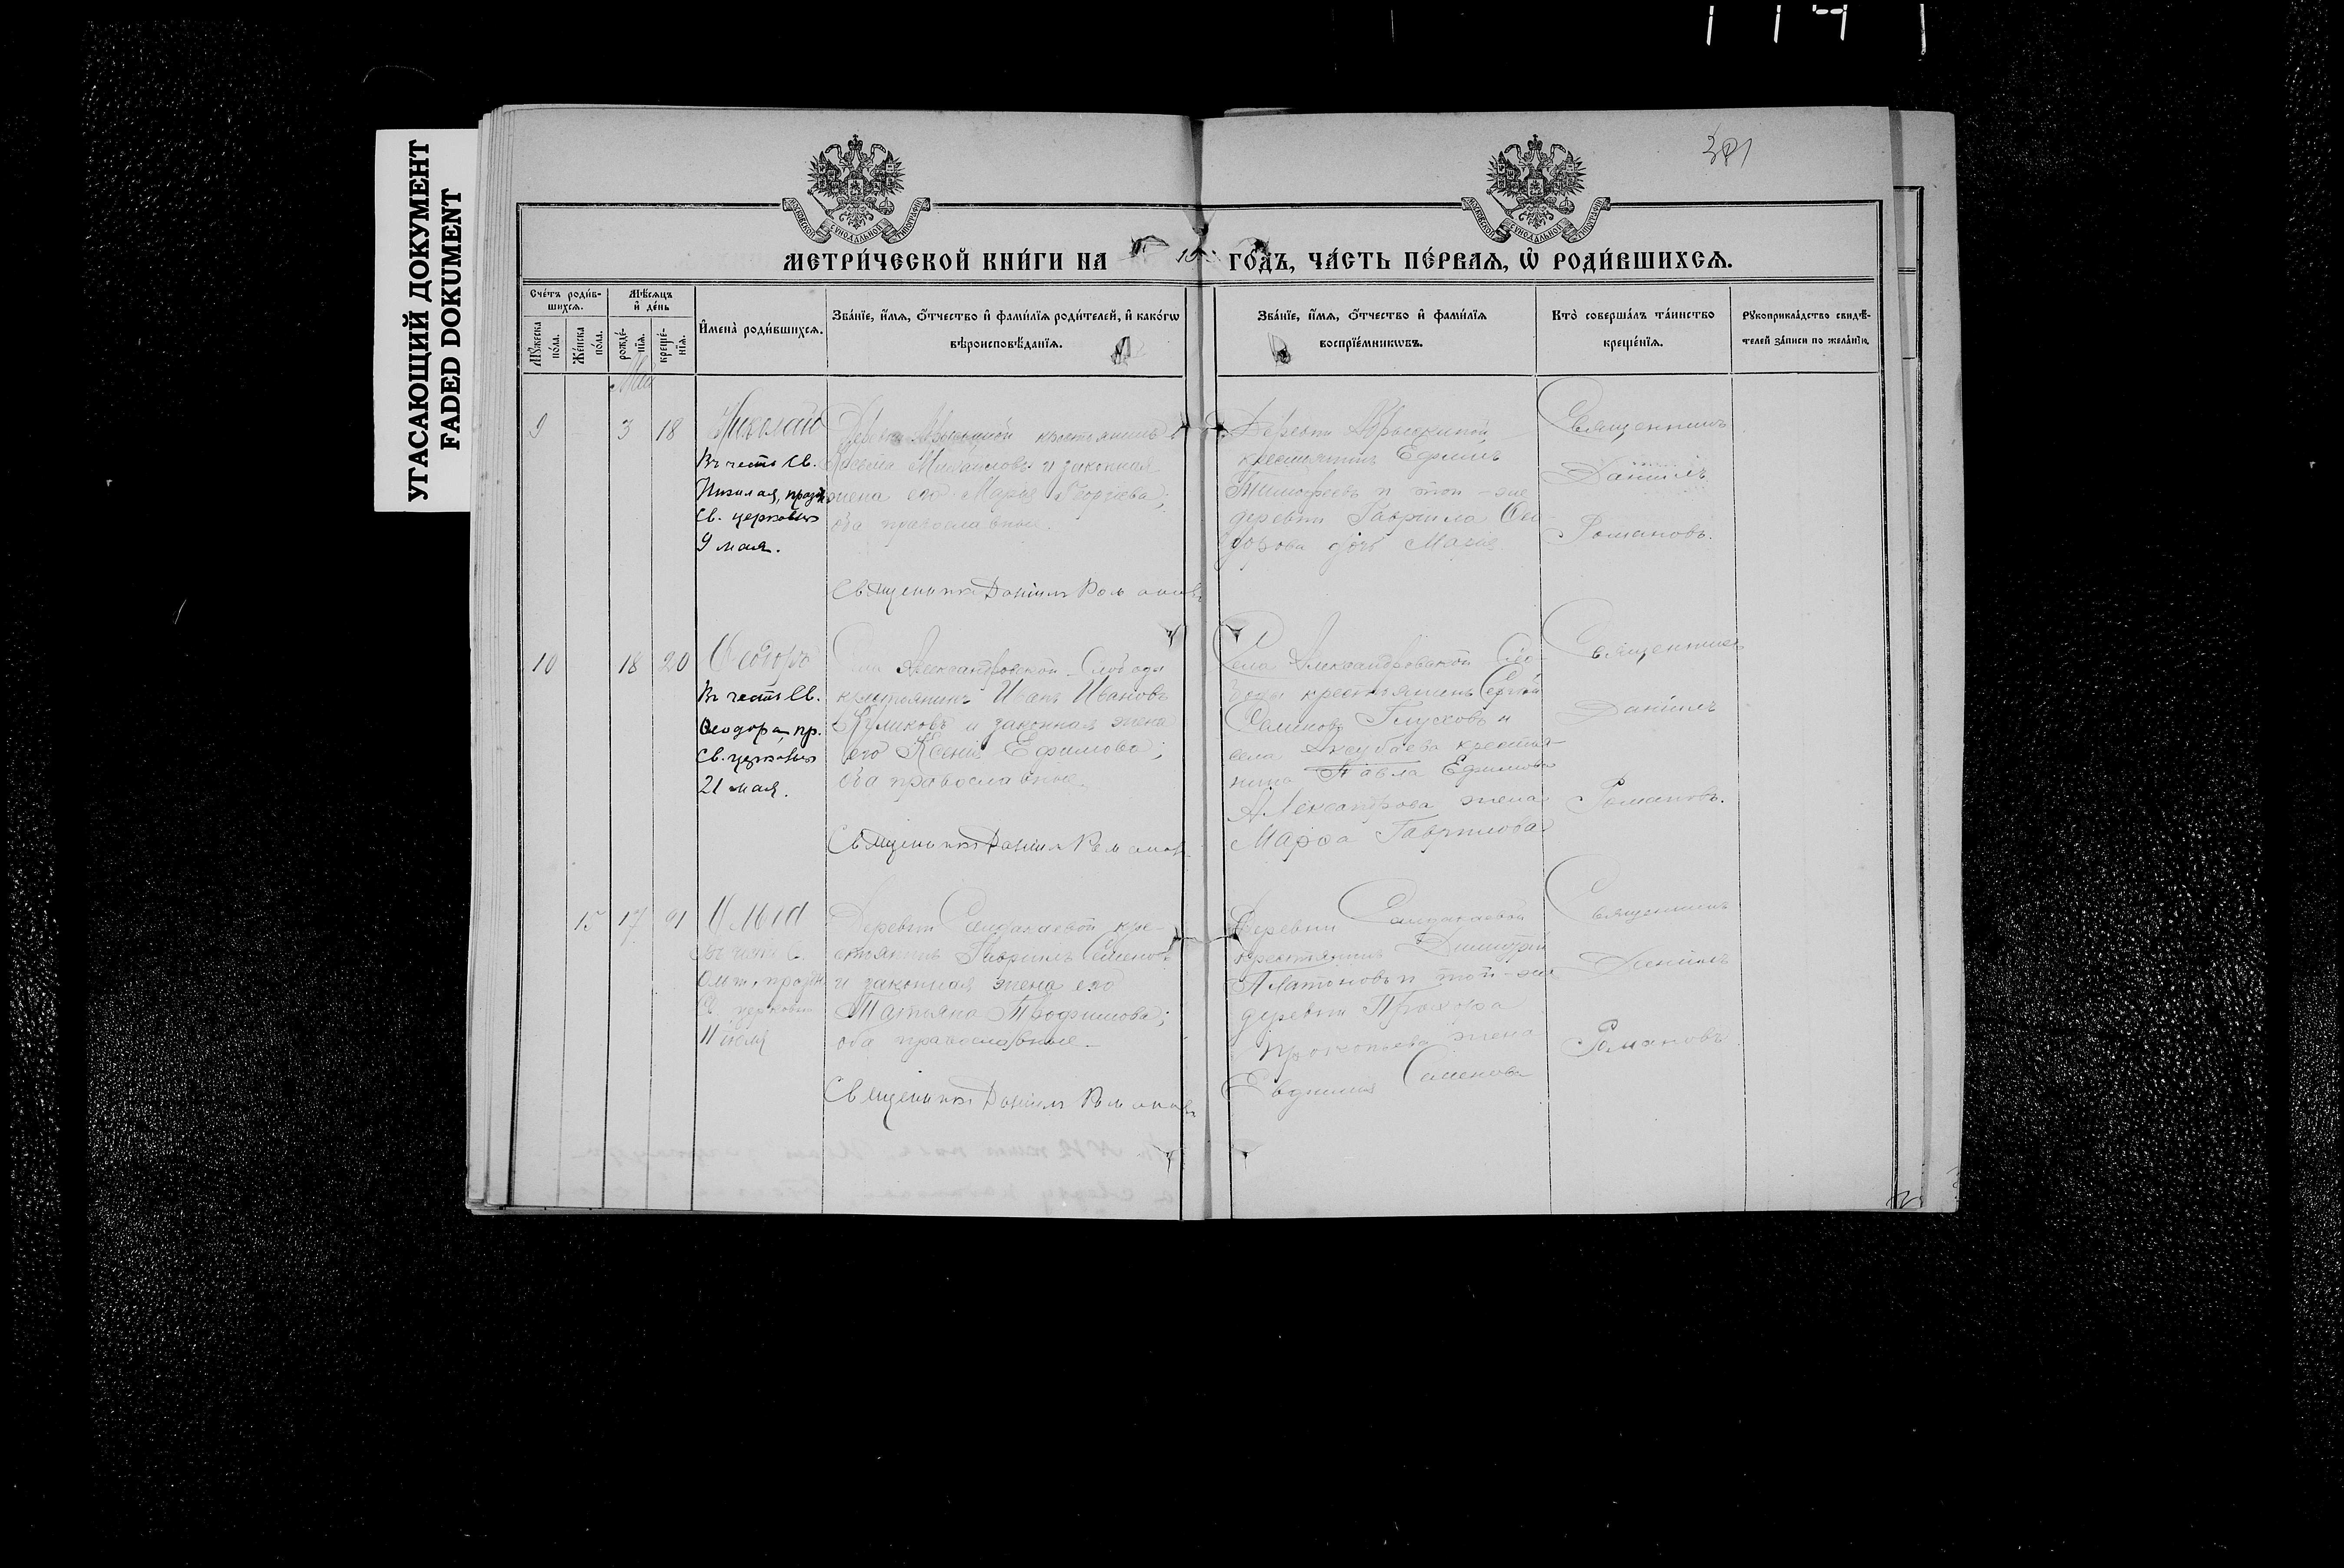 УГАСАЮЩИЙ ДОКУМЕНТ
FADED DOKUMENT
381
МЕТРИ́ЧЕСКОЙ КНИ́ГИ НА
ГО́ДЪ, ЧА́СТЬ ПЕ́РВАѦ, Ѡ҆ РОДИ́ВШИХСѦ.
Сче́тъ роди́в-
шихсѧ.
Мѣ́сѧцъ
и҆ де́нь
Мꙋ́жеска
по́ла.
Же́нска
по́ла.
рожде́-
нїѧ.
креще́-
нїѧ.
И҆мена̀ роди́вшихсѧ.
Зва́нїе, и҆́мѧ, ѻ҆́тчество и҆ фами́лїѧ роди́телей, и҆ како́гѡ
вѣроисповѣ́данїѧ.
Зва́нїе, и҆́мѧ, ѻ҆́тчество и҆ фами́лїѧ
воспрїе́мникѡвъ.
Кто̀ соверша́лъ та́инство
креще́нїѧ.
Рꙋкоприкла́дство свидѣ́-
телей за́писи по жела́нїю.
Май
9 3 18
Николай
Въ честь Св.
Николая, празд.
Св. церковью
9 мая.
крестьянинъ
Михаиловъ и законная
жена его Марья Георгіева;
оба православные.
Священникъ Даніилъ Романовъ
Деревни
крестьянинъ Ефимъ
Тимофеевъ и той-же
деревни Гавриила Ѳео-
дорова дочь Марья
Священникъ
Даніилъ
Романовъ.
10 18 20
Ѳеодоръ
Въ честь Св.
Ѳеодора, пр.
Св. церковью
21 мая.
Села Александровской Слободы
крестьянинъ Иванъ Ивановъ
Куликовъ и законная жена
его Ксенія Ефимова;
оба православные.
Священникъ Даніилъ Романовъ
Села Александровской Сло-
боды крестьянинъ Сергѣй
Семеновъ Глуховъ и
села крестья-
нина Павла Ефимова
Александрова жена
Марѳа Гаврилова
Священникъ
Даніилъ
Романовъ.
15 17 21
Ольга
Въ честь С.
Ольги, празд.
Св. церковью
11 іюля
Деревни кре-
стьянинъ Гавріилъ Семеновъ
и законная жена его
Татьяна Трофимова;
оба православные.
Священникъ Даніилъ Романовъ
Деревни
крестьянинъ Димитрій
Платоновъ и той-же
деревни Прохора
Прокопьева жена
Евдокія Семенова
Священникъ
Даніилъ
Романовъ